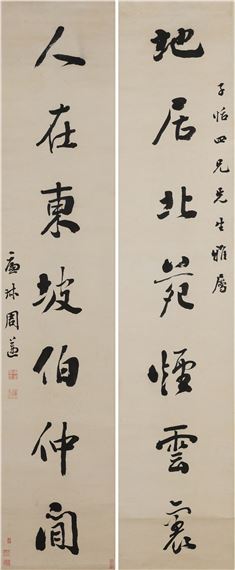 子恬四兄先生雅屬
地居北苑煙雲裏
人在東坡伯仲間
周蓮